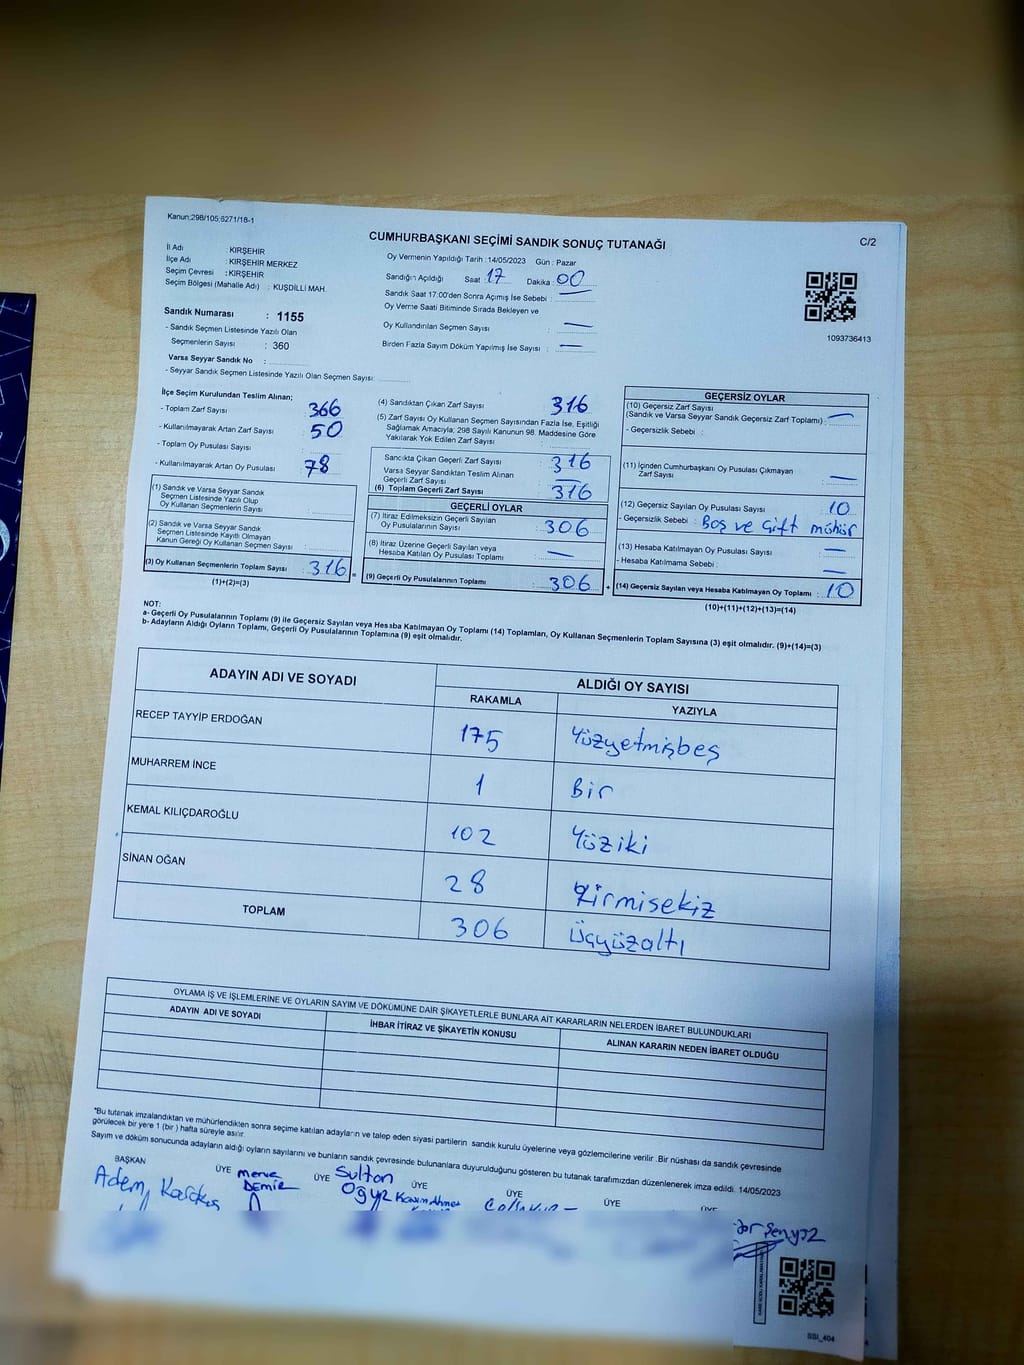 Kanun:298/105,6271/18-1
CUMHURBAŞKANI SEÇİMİ SANDIK SONUÇ TUTANAĞI
C/2
İl Adı : KIRŞEHİR
İlçe Adı : KIRŞEHİR MERKEZ
Seçim Çevresi : KIRŞEHİR
Seçim Bölgesi (Mahalle Adı) : KUŞDİLLİ MAH.
Sandık Numarası : 1155
- Sandık Seçmen Listesinde Yazılı Olan
Seçmenlerin Sayısı : 360
Varsa Seyyar Sandık No :
- Seyyar Sandık Seçmen Listesinde Yazılı Olan Seçmen Sayısı:
Oy Vermenin Yapıldığı Tarih :14/05/2023 Gün : Pazar
Sandığın Açıldığı Saat : 17 Dakika : 00
Sandık Saat 17:00'den Sonra Açımış İse Sebebi :
Oy Verme Saati Bitiminde Sırada Bekleyen ve
Oy Kullandırılan Seçmen Sayısı : —
Birden Fazla Sayım Döküm Yapılmış İse Sayısı : —
1093736413
İlçe Seçim Kurulundan Teslim Alınan;
- Toplam Zarf Sayısı : 366
- Kullanılmayarak Artan Zarf Sayısı : 50
- Toplam Oy Pusulası Sayısı :
- Kullanılmayarak Artan Oy Pusulası : 78
(1) Sandık ve Varsa Seyyar Sandık
Seçmen Listesinde Yazılı Olup
Oy Kullanan Seçmenlerin Sayısı :
(2) Sandık ve Varsa Seyyar Sandık
Seçmen Listesinde Kayıtlı Olmayan
Kanun Gereği Oy Kullanan Seçmen Sayısı :
(3) Oy Kullanan Seçmenlerin Toplam Sayısı : 316
(1)+(2)=(3)
(4) Sandıktan Çıkan Zarf Sayısı 316
(5) Zarf Sayısı Oy Kullanan Seçmen Sayısından Fazla İse, Eşitliği
Sağlamak Amacıyla, 298 Sayılı Kanunun 98. Maddesine Göre
Yakılarak Yok Edilen Zarf Sayısı :
Sandıkta Çıkan Geçerli Zarf Sayısı : 316
Varsa Seyyar Sandıktan Teslim Alınan
Geçerli Zarf Sayısı : —
(6) Toplam Geçerli Zarf Sayısı : 316
GEÇERLİ OYLAR
(7) İtiraz Edilmeksizin Geçerli Sayılan
Oy Pusulalarının Sayısı : 306
(8) İtiraz Üzerine Geçerli Sayılan veya
Hesaba Katılan Oy Pusulası Toplamı : —
(9) Geçerli Oy Pusulalarının Toplamı : 306
GEÇERSİZ OYLAR
(10) Geçersiz Zarf Sayısı
(Sandık ve Varsa Seyyar Sandık Geçersiz Zarf Toplamı) : —
- Geçersizlik Sebebi :
(11) İçinden Cumhurbaşkanı Oy Pusulası Çıkmayan
Zarf Sayısı : —
(12) Geçersiz Sayılan Oy Pusulası Sayısı : 10
- Geçersizlik Sebebi : Boş ve Çift mühür
(13) Hesaba Katılmayan Oy Pusulası Sayısı : —
- Hesaba Katılmama Sebebi : —
(14) Geçersiz Sayılan veya Hesaba Katılmayan Oy Toplamı : 10
(10)+(11)+(12)+(13)=(14)
NOT:
a- Geçerli Oy Pusulalarının Toplamı (9) ile Geçersiz Sayılan veya Hesaba Katılmayan Oy Toplamı (14) Toplamları, Oy Kullanan Seçmenlerin Toplam Sayısına (3) eşit olmalıdır. (9)+(14)=(3)
b- Adayların Aldığı Oyların Toplamı, Geçerli Oy Pusulalarının Toplamına (9) eşit olmalıdır.
ADAYIN ADI VE SOYADI ALDIĞI OY SAYISI
RAKAMLA YAZIYLA
RECEP TAYYİP ERDOĞAN 175 Yüzyetmişbeş
MUHARREM İNCE 1 Bir
KEMAL KILIÇDAROĞLU 102 Yüziki
SİNAN OĞAN 28 Yirmisekiz
TOPLAM 306 Üçyüzaltı
OYLAMA İŞ VE İŞLEMLERİNE VE OYLARIN SAYIM VE DÖKÜMÜNE DAİR ŞİKAYETLERLE BUNLARA AİT KARARLARIN NELERDEN İBARET BULUNDUKLARI
ADAYIN ADI VE SOYADI İHBAR İTİRAZ VE ŞİKAYETİN KONUSU ALINAN KARARIN NEDEN İBARET OLDUĞU
*Bu tutanak imzalandıktan ve mühürlendikten sonra seçime katılan adayların ve talep eden siyasi partilerin sandık kurulu üyelerine veya gözlemcilerine verilir .Bir nüshası da sandık çevresinde
görülecek bir yere 1 (bir ) hafta süreyle asılır.
Sayım ve döküm sonucunda adayların aldığı oyların sayılarını ve bunların sandık çevresinde bulunanlara duyurulduğunu gösteren bu tutanak tarafımızdan düzenlenerek imza edildi. 14/05/2023
BAŞKAN ÜYE ÜYE ÜYE ÜYE ÜYE
Adem Merve DEMİR Sultan
SSI_404